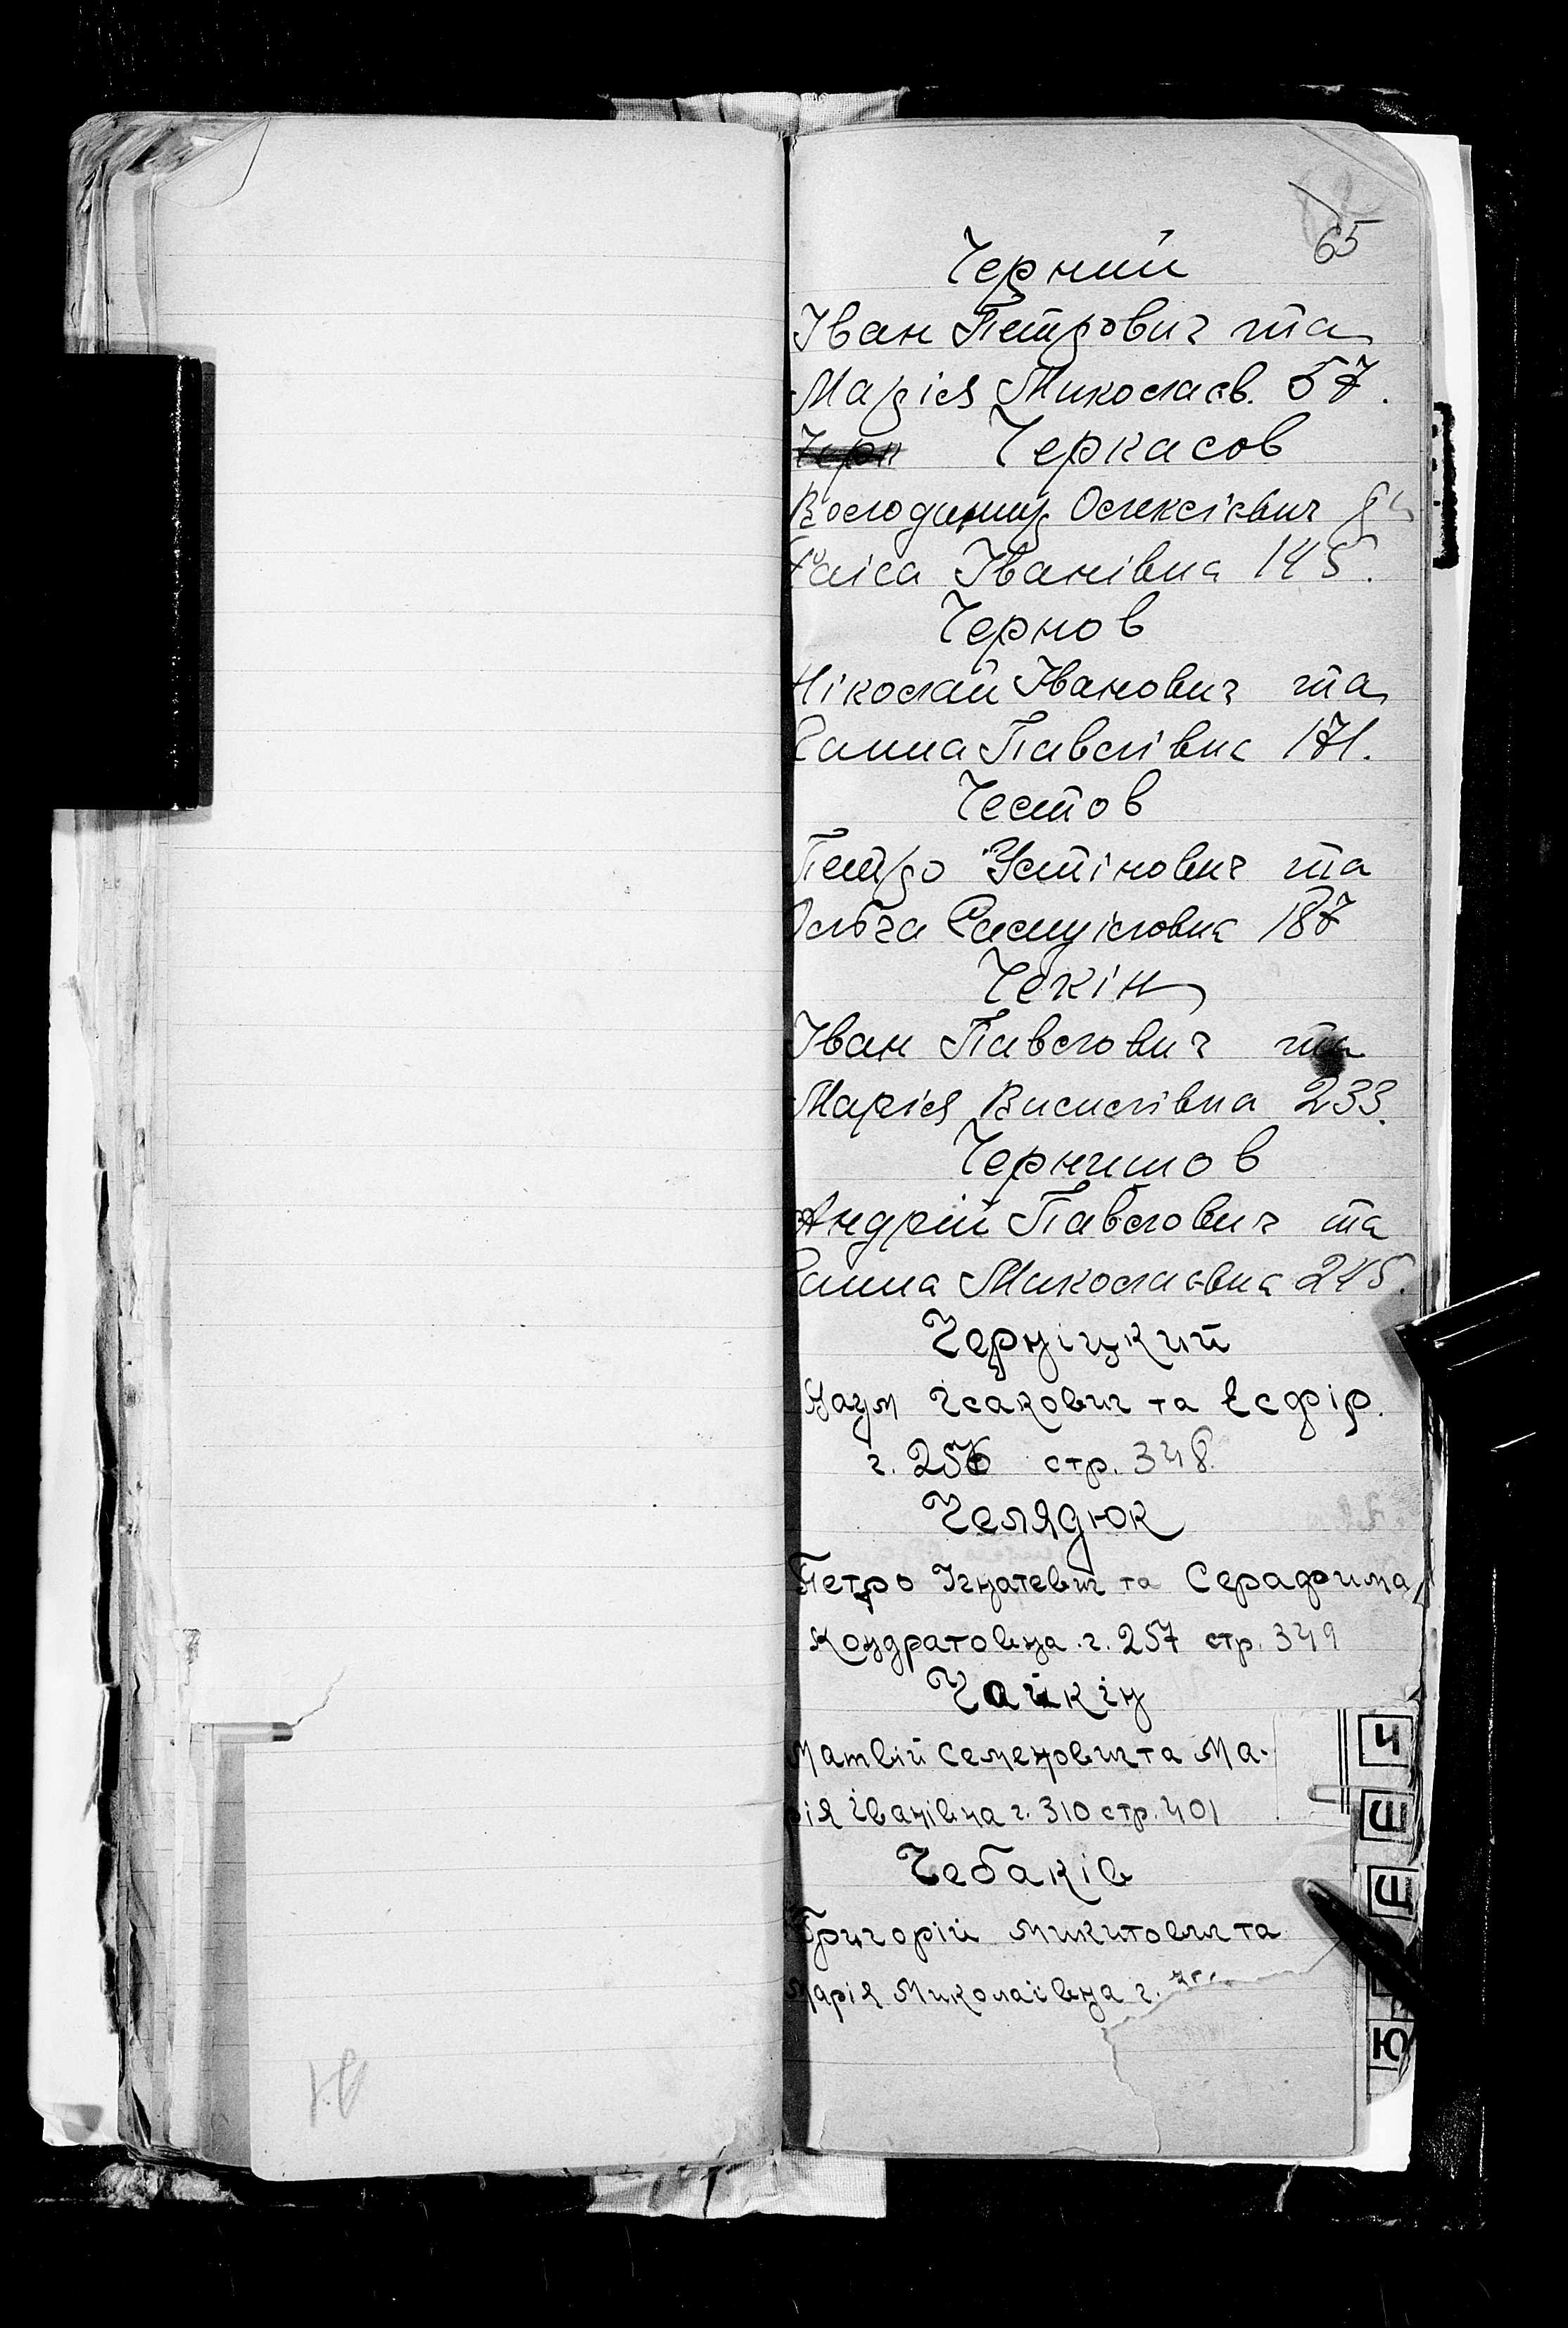 65
Черний
Іван Петрович та
Марія Миколаєв. 57.
Черкасов
Володимир Олексієвич
Раіса Іванівна 145.
Чернов
Ніколай Іванович та
Ганна Павлівна 171.
Честов
Петро Устінович та
Ольга Самуіловна 187
Чекін
Іван Павлович та
Марія Василівна 233.
Чернишов
Андрій Павлович та
Ганна Миколаєвна 245.
Черніцкий
Наум Ісакович та Есфір.
г. 256 стр. 348.
Челядюк
Петро Ігнатевич та Серафима
Кондратовна г. 257 стр. 349
Чайкін
Матвій Семенович та Ма-
рія Іванівна г. 310 стр. 401
Чебаків
Григорій Микитович та
Марія Миколаівна г.
Ч
Ш
Щ
Ю